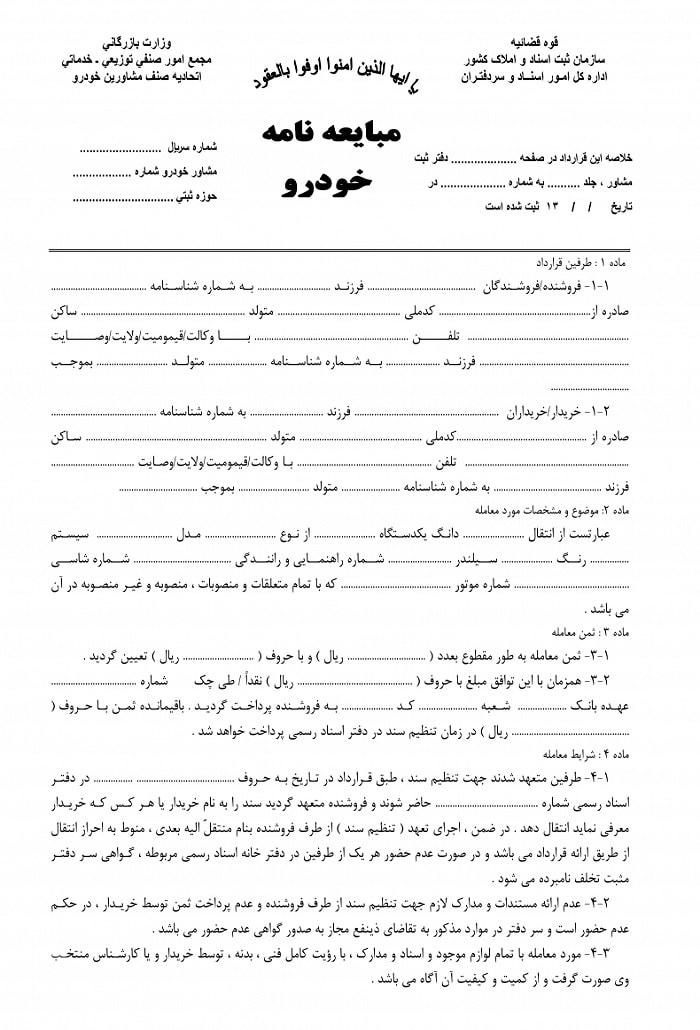 قوه قضائیه
سازمان ثبت اسناد و املاک کشور
اداره کل امور اسناد و سردفتران
یا ایها الذین امنوا اوفوا بالعقود
وزارت بازرگاني
مجمع امور صنفي توزيعي ـ خدماتي
اتحاديه صنف مشاورين خودرو
مبایعه نامه
خودرو
خلاصه این قرارداد در صفحه .................... دفتر ثبت
مشاور ، جلد .......... به شماره .................... در
تاریخ / / ۱۳ ثبت شده است
شماره سریال .........................
مشاور خودرو شماره ..................
حوزه ثبتي ...............................
ماده ۱ : طرفین قرارداد
۱-۱- فروشنده/فروشندگان ............................ فرزند ............................ به شماره شناسنامه ............................
صادره از............................ کدملی ............................ متولد ............................ ساکن
............................ تلفن ............................ با وکالت/قیمومیت/ولایت/وصایت
............................ فرزند .................... به شماره شناسنامه .................... متولد .................... بموجب
............................
۱-۲- خریدار/خریداران ............................ فرزند .................... به شماره شناسنامه ............................
صادره از ............................کدملی ............................ متولد ............................ ساکن
............................ تلفن ............................ با وکالت/قیمومیت/ولایت/وصایت ............................
فرزند ............................ به شماره شناسنامه .................... متولد .................... بموجب ....................
ماده ۲: موضوع و مشخصات مورد معامله
عبارتست از انتقال .................... دانگ یکدستگاه .................... از نوع .................... مدل .................... سیستم
............... رنگ .................... سیلندر .................... شماره راهنمایی و رانندگی .................... شماره شاسی
............................ شماره موتور ............................ که با تمام متعلقات و منصوبات ، منصوبه و غیر منصوبه در آن
می باشد .
ماده ۳ : ثمن معامله
۳-۱- ثمن معامله به طور مقطوع بعدد ( ............................ ریال ) و با حروف ( .................... ریال ) تعیین گردید .
۳-۲- همزمان با این توافق مبلغ با حروف ( ............................ ریال ) نقداً / طی چک شماره ............................
عهده بانک .................... شعبه .................... کد .................... به فروشنده پرداخت گردید . باقیمانده ثمن با حروف (
............................ ریال ) در زمان تنظیم سند در دفتر اسناد رسمی پرداخت خواهد شد .
ماده ۴ : شرایط معامله
۴-۱- طرفین متعهد شدند جهت تنظیم سند ، طبق قرارداد در تاریخ به حروف ............................ ............... در دفتر
اسناد رسمی شماره ............................ حاضر شوند و فروشنده متعهد گردید سند را به نام خریدار یا هر کس که خریدار
معرفی نماید انتقال دهد . در ضمن ، اجرای تعهد ( تنظیم سند ) از طرف فروشنده بنام منتقلٌ الیه بعدی ، منوط به احراز انتقال
از طریق ارائه قرارداد می باشد و در صورت عدم حضور هر یک از طرفین در دفتر خانه اسناد رسمی مربوطه ، گواهی سر دفتر
مثبت تخلف نامبرده می شود .
۴-۲- عدم ارائه مستندات و مدارک لازم جهت تنظیم سند از طرف فروشنده و عدم پرداخت ثمن توسط خریدار ، در حکم
عدم حضور است و سر دفتر در موارد مذکور به تقاضای ذینفع مجاز به صدور گواهی عدم حضور می باشد .
۴-۳- مورد معامله با تمام لوازم موجود و اسناد و مدارک ، با رؤیت کامل فنی ، بدنه ، توسط خریدار و یا کارشناس منتخب
وی صورت گرفت و از کمیت و کیفیت آن آگاه می باشد .